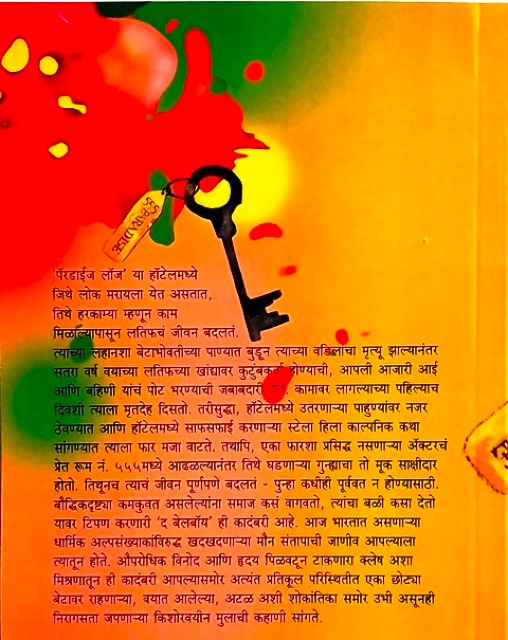 555
PARADISE
'पॅरडाईज लॉज' या हॉटेलमध्ये
जिथे लोक मरायला येत असतात,
तिथे हरकाम्या म्हणून काम
मिळाल्यापासून लतिफचं जीवन बदलतं.
त्याच्या लहानशा बेटाभोवतीच्या पाण्यात बुडून त्याच्या वडिलांचा मृत्यू झाल्यानंतर
सतरा वर्ष वयाच्या लतिफच्या खांद्यावर कुटुंबकर्ता होण्याची, आपली आजारी आई
आणि बहिणी यांचं पोट भरण्याची जबाबदारी येते. कामावर लागल्याच्या पहिल्याच
दिवशी त्याला मृतदेह दिसतो. तरीसुद्धा, हॉटेलमध्ये उतरणाऱ्या पाहुण्यांवर नजर
ठेवण्यात आणि हॉटेलमध्ये साफसफाई करणाऱ्या स्टेला हिला काल्पनिक कथा
सांगण्यात त्याला फार मजा वाटते. तथापि, एका फारशा प्रसिद्ध नसणाऱ्या ॲक्टरचं
प्रेत रूम नं. ५५५मध्ये आढळल्यानंतर तिथे घडणाऱ्या गुन्ह्याचा तो मूक साक्षीदार
होतो. तिथूनच त्याचं जीवन पूर्णपणे बदलतं - पुन्हा कधीही पूर्ववत न होण्यासाठी.
बौद्धिकदृष्ट्या कमकुवत असलेल्यांना समाज कसं वागवतो, त्यांचा बळी कसा देतो
यावर टिपण करणारी 'द बेलबॉय' ही कादंबरी आहे. आज भारतात असणाऱ्या
धार्मिक अल्पसंख्याकांविरुद्ध खदखदणाऱ्या मौन संतापाची जाणीव आपल्याला
त्यातून होते. औपरोधिक विनोद आणि हृदय पिळवटून टाकणारा क्लेष अशा
मिश्रणातून ही कादंबरी आपल्यासमोर अत्यंत प्रतिकूल परिस्थितीत एका छोट्या
बेटावर राहणाऱ्या, वयात आलेल्या, अटळ अशी शोकांतिका समोर उभी असूनही
निरागसता जपणाऱ्या किशोरवयीन मुलाची कहाणी सांगते.